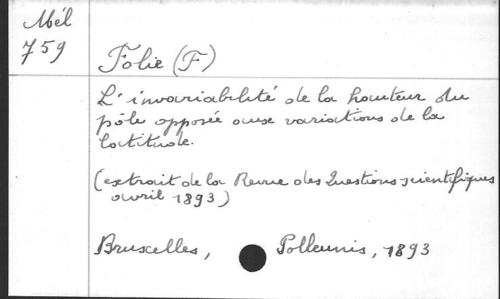 Mél
759
Folie (F)
L'invariabilité de la hauteur du
pôle opposée aux variations de la
latitude.
(extrait de la Revue des Questions scientifiques
avril 1893)
Bruxelles, Polleunis, 1893